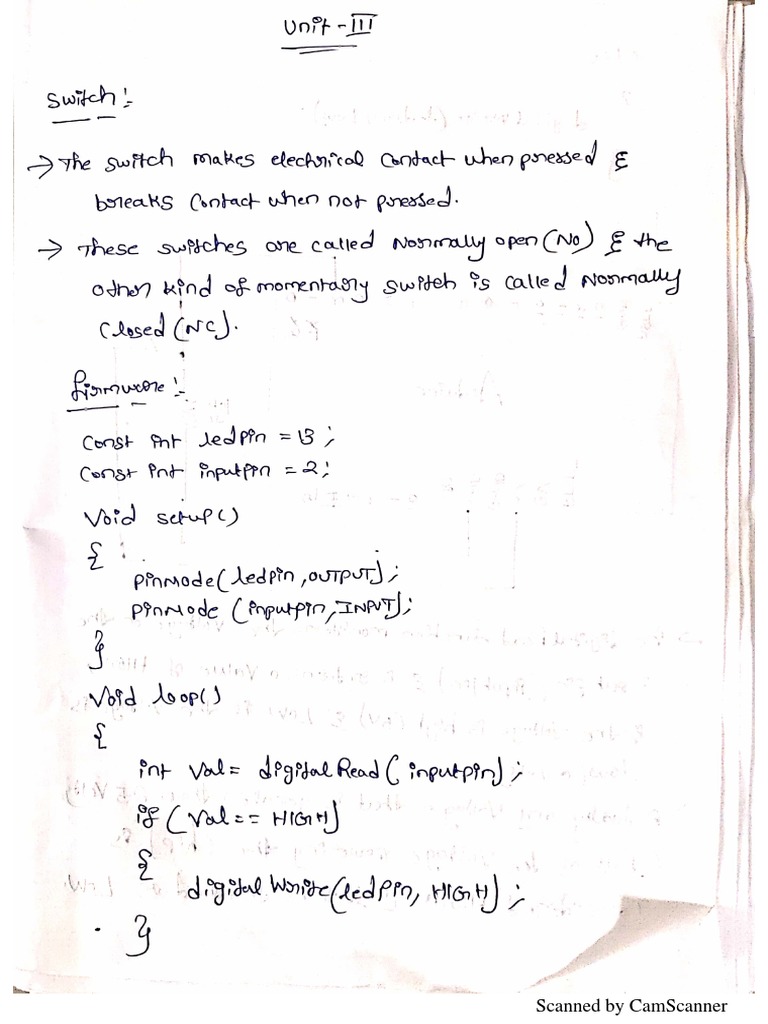 Unit - III
Switch :-
→ The switch makes electrical contact when pressed &
breaks contact when not pressed.
→ These switches are called Normally open (NO) & the
other kind of momentary switch is called Normally
Closed (NC).
firmware :-
Const int ledpin = 13 ;
Const int inputpin = 2 ;
Void setup()
{
pinMode( ledpin , OUTPUT) ;
pinMode ( inputpin, INPUT) ;
}
Void loop()
{
int Val = digitalRead ( inputpin) ;
if ( Val == HIGH)
{
digitalWrite(ledpin, HIGH) ;
}
Scanned by CamScanner